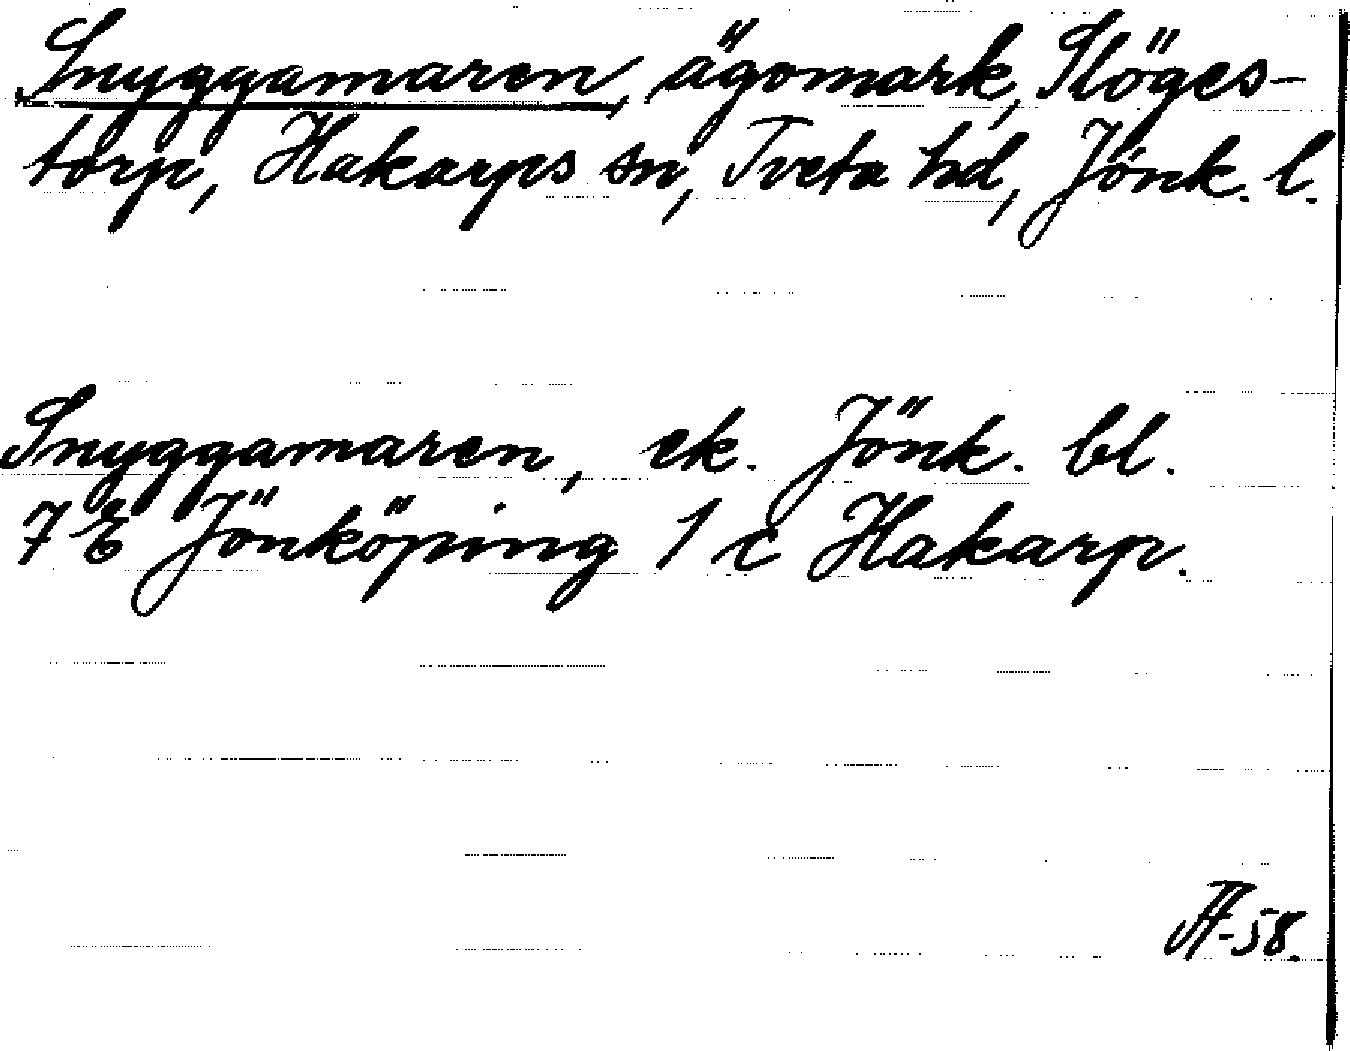 Snyggamaren, ägomark, Slöges-
torp, Hakarps sn, Tveta hd, Jönk. l.
Snyggamaren, ek. Jönk. bl.
7 E Jönköping 1 c Hakarp.
-58.